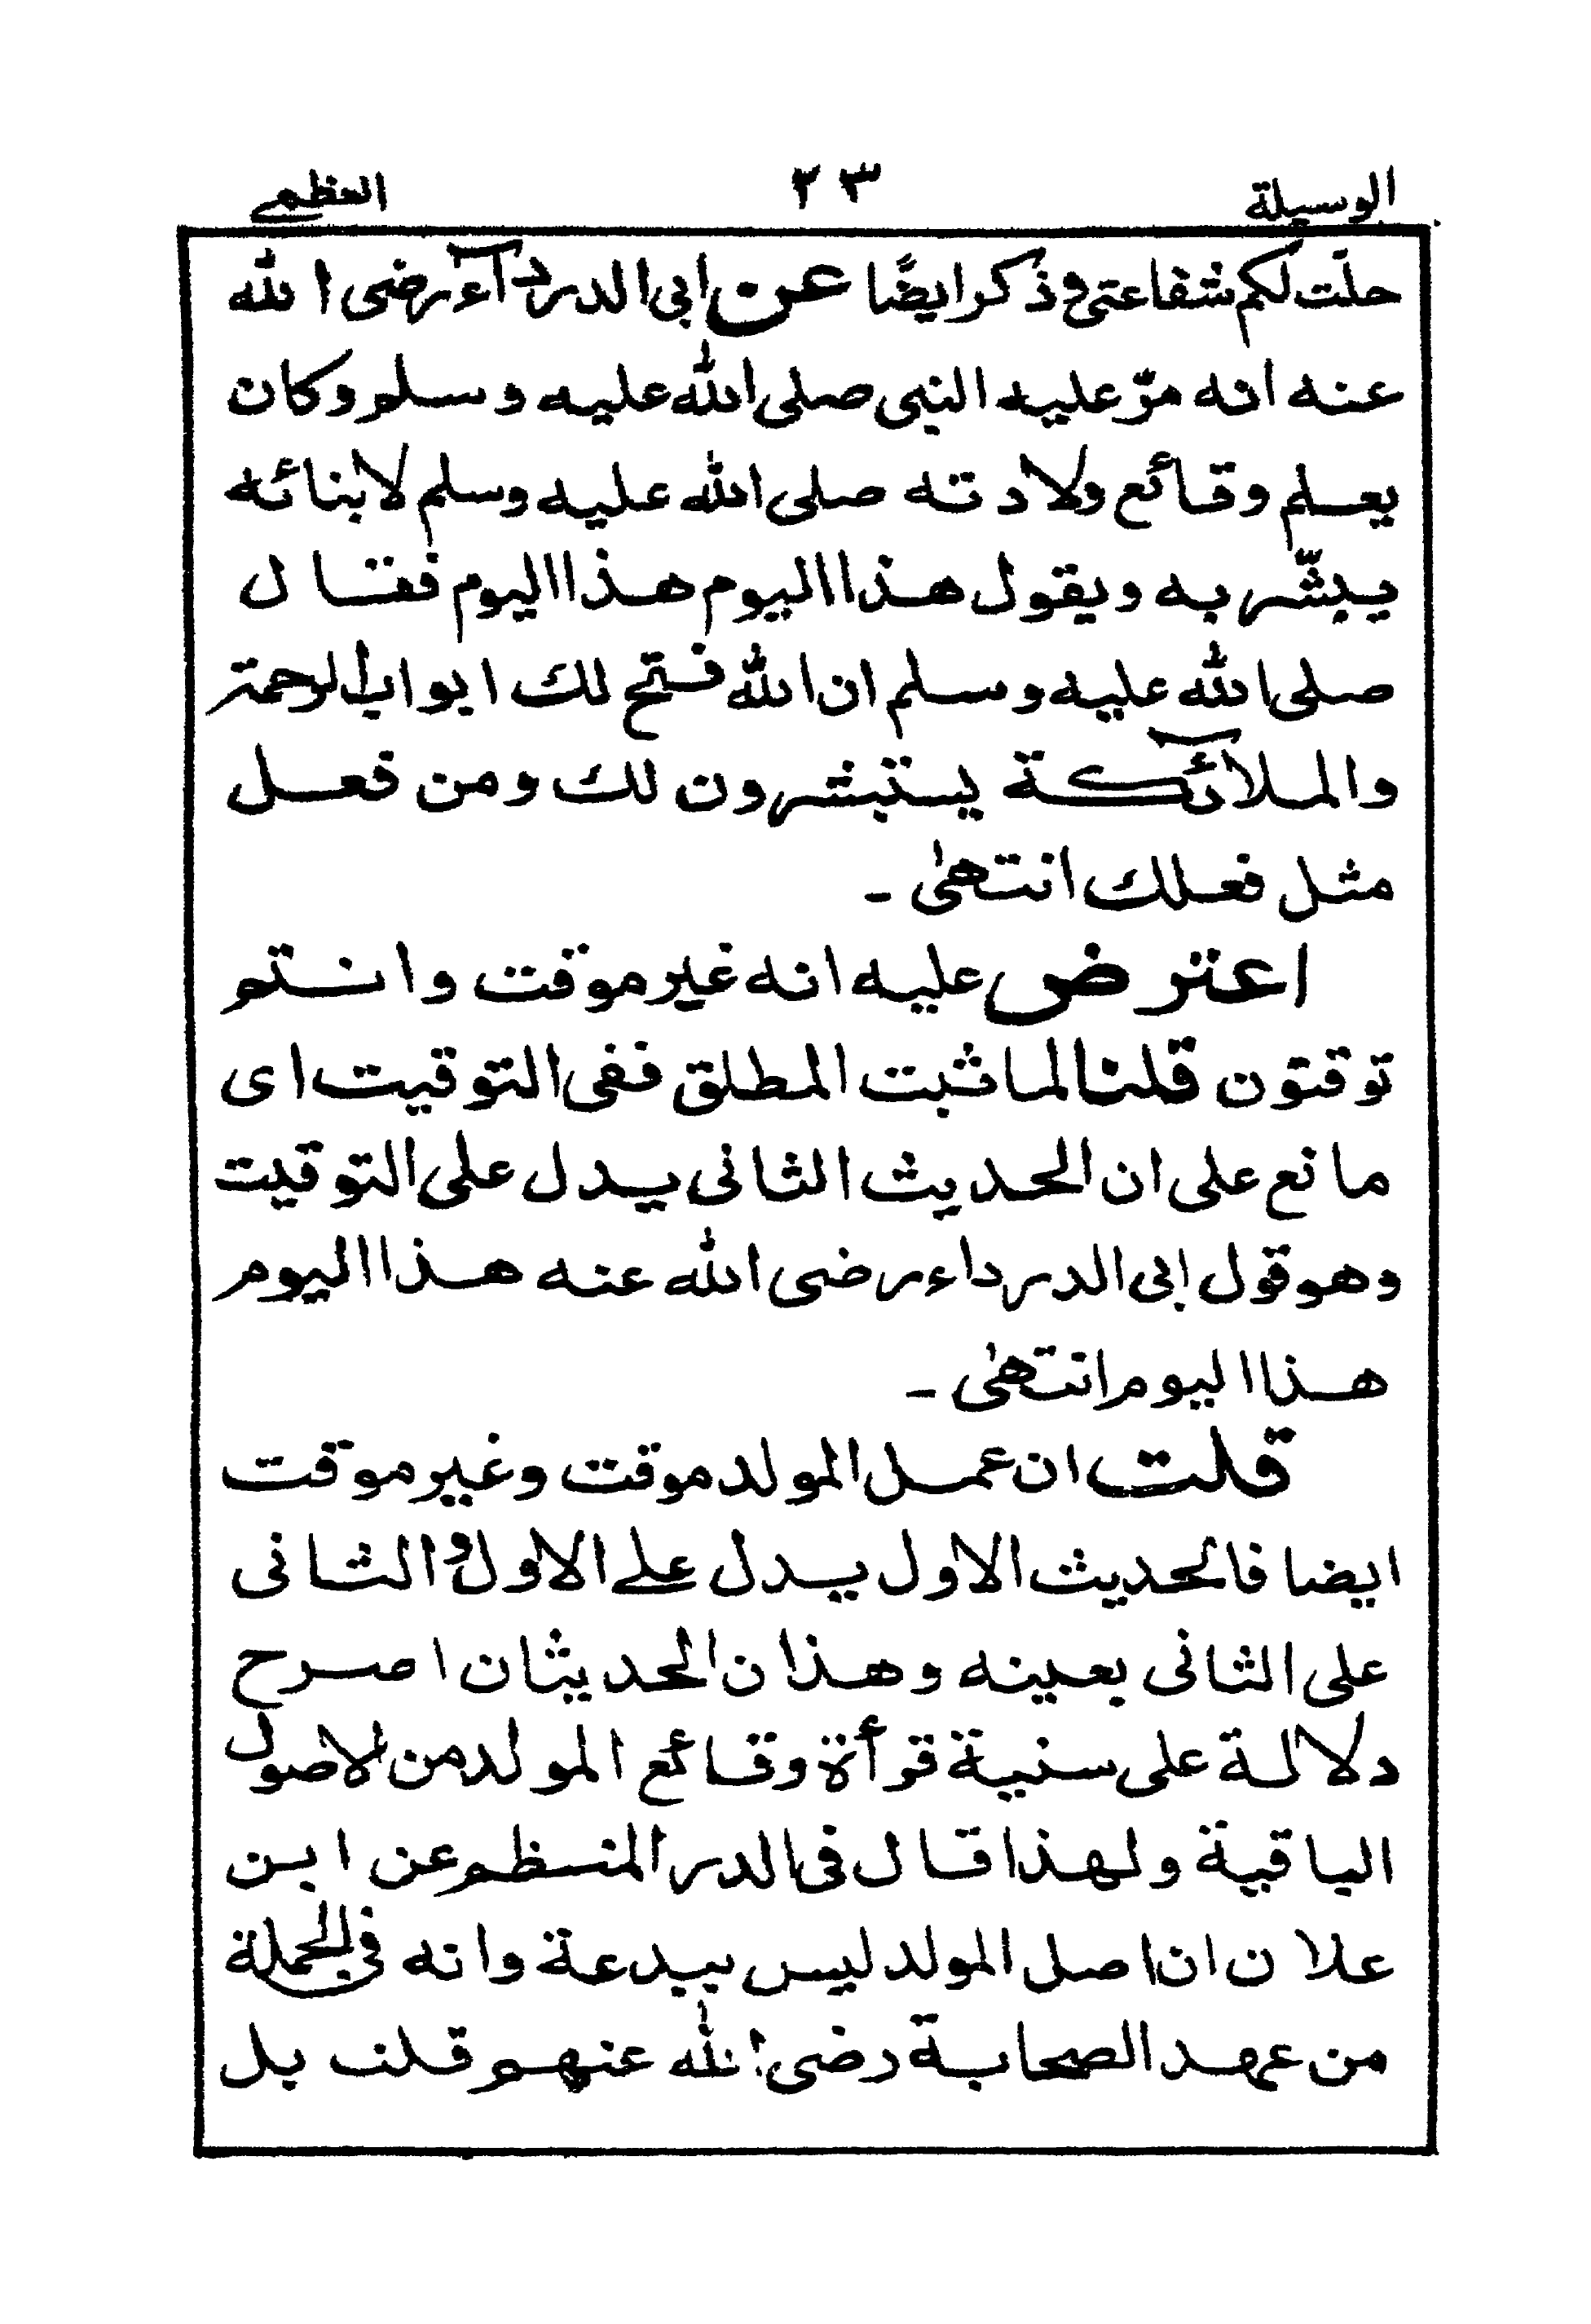 الوسيلة ٢٣ العظمى
حلّت لكم شفاعتى وذكر ايضًا عن ابى الدردآء رضى الله
عنه انه مرّ عليه النبى صلى الله عليه وسلم وكان
يعلم وقائع ولادته صلى الله عليه وسلم لابنائه
يبشّر به ويقول هذا اليوم هذا اليوم فقال
صلى الله عليه وسلم ان الله فتح لك ابواب الرحمة
والملآئكة يستبشرون لك ومن فعل
مثل فعلك انتهىٰ ـ
اعترض عليه انه غير موقت وانتم
توقتون قلنا لما ثبت المطلق ففى التوقيت اى
مانع على ان الحديث الثانى يدل على التوقيت
وهو قول ابى الدرداء رضى الله عنه هذا اليوم
هذا اليوم انتهىٰ ـ
قلت ان عمل المولد موقت وغير موقت
ايضا فالحديث الاول يدل على الاول والثانى
على الثانى بعينه وهذان الحديثان اصرح
دلالة على سنية قرأة وقائع المولد من الاصول
الباقية ولهذا قال فى الدر المنظم عن ابن
علان ان اصل المولد ليس ببدعة وانه فى الجملة
من عهد الصحابة رضى الله عنهم قلت بل